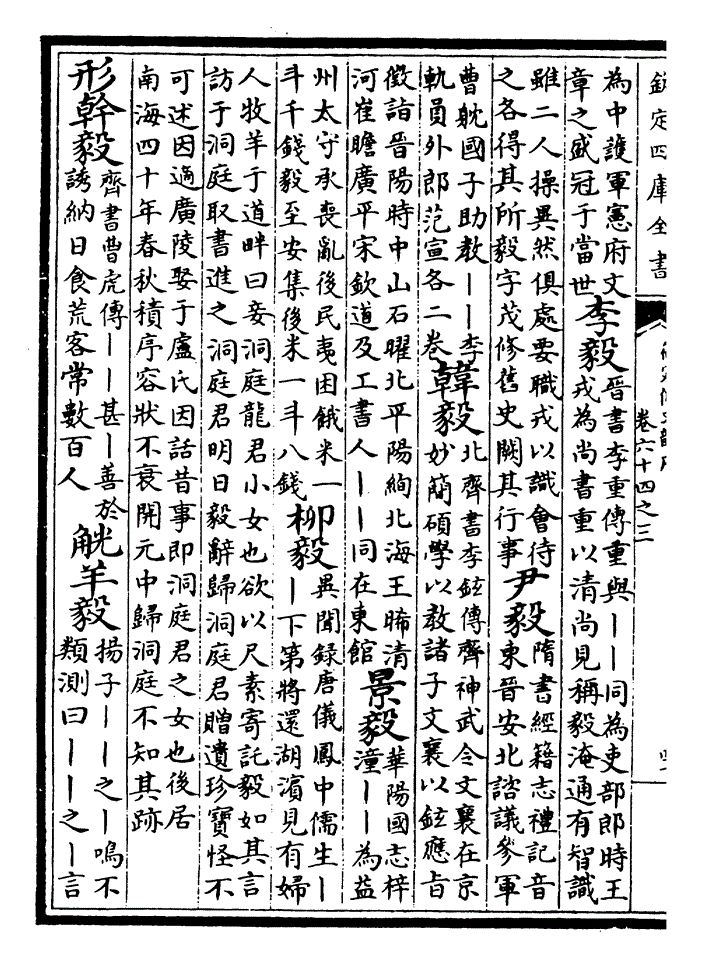 欽定四庫全書
卷六十四之三
為中護軍憲府文
章之盛冠于當世
李毅
晉書李重傳重與丨丨同為吏部郎時王
戎為尚書重以清尚見稱毅淹通有智識
雖二人操異然俱處要職戎以識會待
之各得其所毅字茂修舊史闕其行事
尹毅
隋書經籍志禮記音
東晉安北諮議參軍
曹躭國子助教丨丨李
軌員外郎范宣各二卷
韓毅
北齊書李鉉傳齊神武令文襄在京
妙簡碩學以教諸子文襄以鉉應㫖
徵詣晉陽時中山石曜北平陽絢北海王晞清
河崔瞻廣平宋欽道及工書人丨丨同在東館
景毅
華陽國志梓
潼丨丨為益
州太守承喪亂後民夷困餓米一
斗千錢毅至安集後米一斗八錢
柳毅
異聞録唐儀鳳中儒生丨
丨下第將還湖濱見有婦
人牧羊于道畔曰妾洞庭龍君小女也欲以尺素寄託毅如其言
訪于洞庭取書進之洞庭君明日毅辭歸洞庭君贈遺珍寶怪不
可述因適廣陵娶于盧氏因話昔事即洞庭君之女也後居
南海四十年春秋積序容狀不衰開元中歸洞庭不知其跡
形幹毅
齊書曹虎傳丨丨甚丨善於
誘納日食荒客常數百人
觥羊毅
揚子丨丨之丨鳴不
類測曰丨丨之丨言